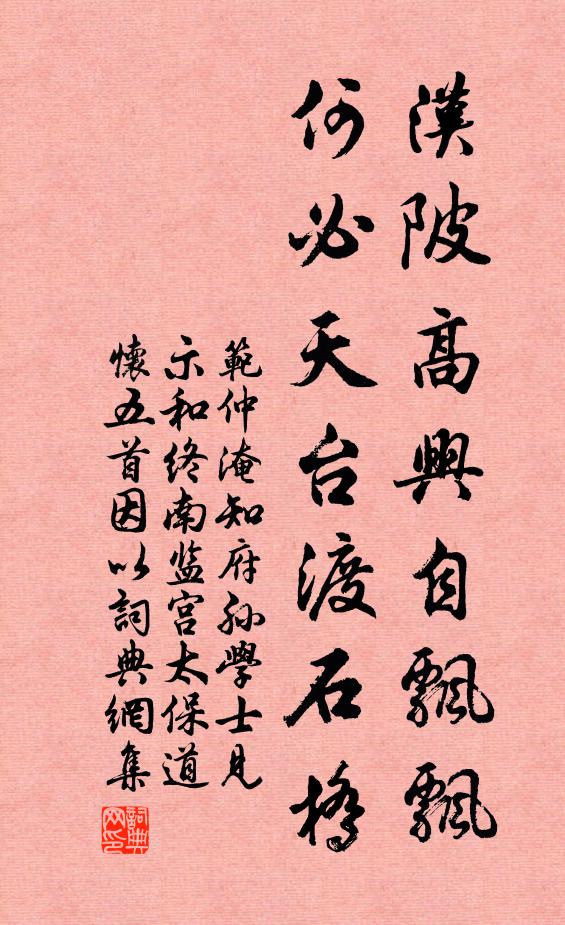 漢陂高興自飄飄
何必天台渡石橋
範仲淹知府孫學士見
示和終南监宫太保道
懷五首因以詞典網集
詞典网印